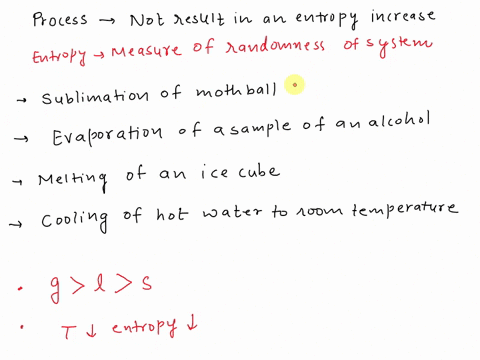 Process → Not result in an entropy increase
Entropy → Measure of randomness of system
→ Sublimation of mothball
→ Evaporation of a sample of an alcohol
→ Melting of an ice cube
→ Cooling of hot water to room temperature
• g > l > s
• T ↓ entropy ↓